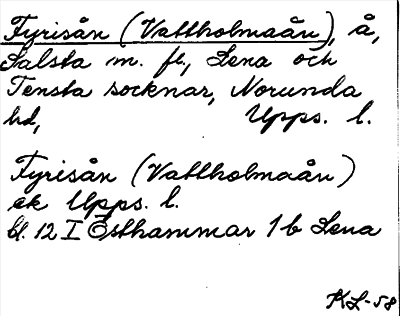 Fyrisån (Vattholmaån), å,
Salsta m. fl., Lena och
Tensta socknar, Norunda
hd, Upps. l.
Fyrisån (Vattholmaån)
ek Upps. l.
bl. 12 I Östhammar 1b Lena
KL-58